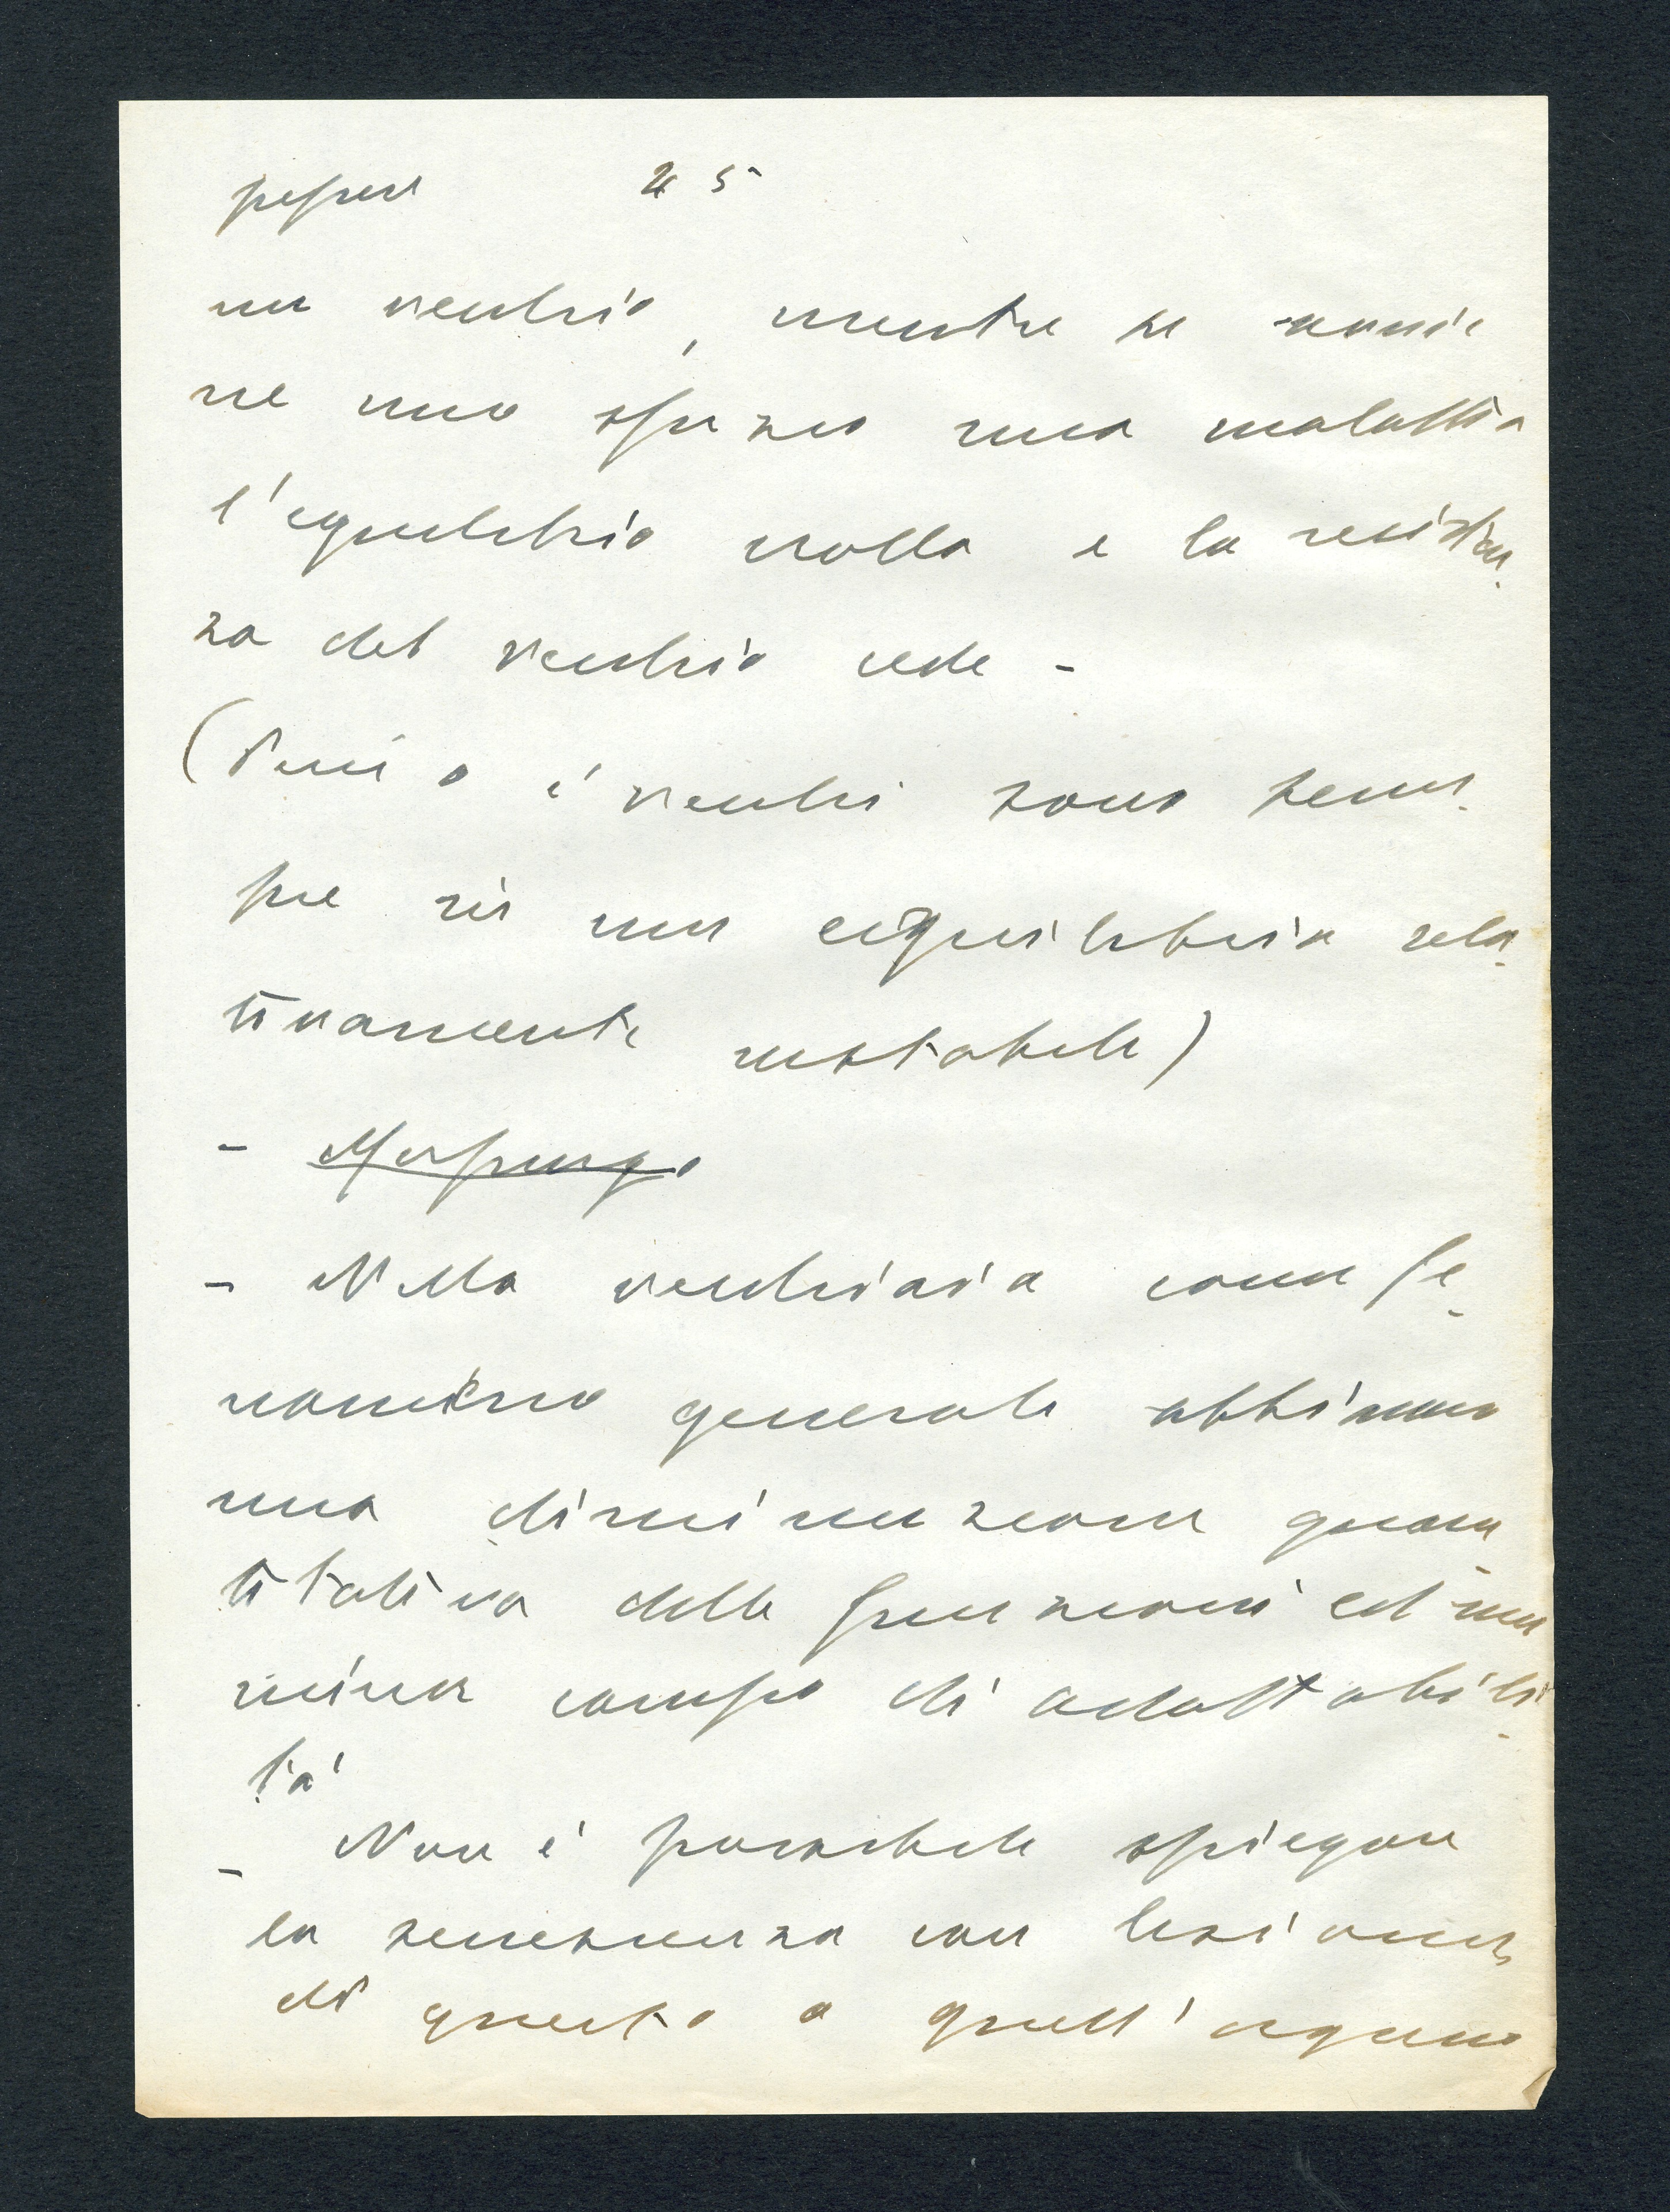 25
un vecchio, mentre se avvie
ne uno sforzo una malattia
l'equilibrio crolla e la resisten-
za del vecchio cede -
( i vecchi sono sem-
pre in un equilibrio rela-
tivamente instabile)
-
- Nella vecchiaia come fe-
nomeno generale abbiamo
una diminuzione quan-
titativa delle funzioni ed un
minor campo di adattabili-
tà
- Non è possibile spiegare
la senescenza con lesioni
di questo o quell'organo